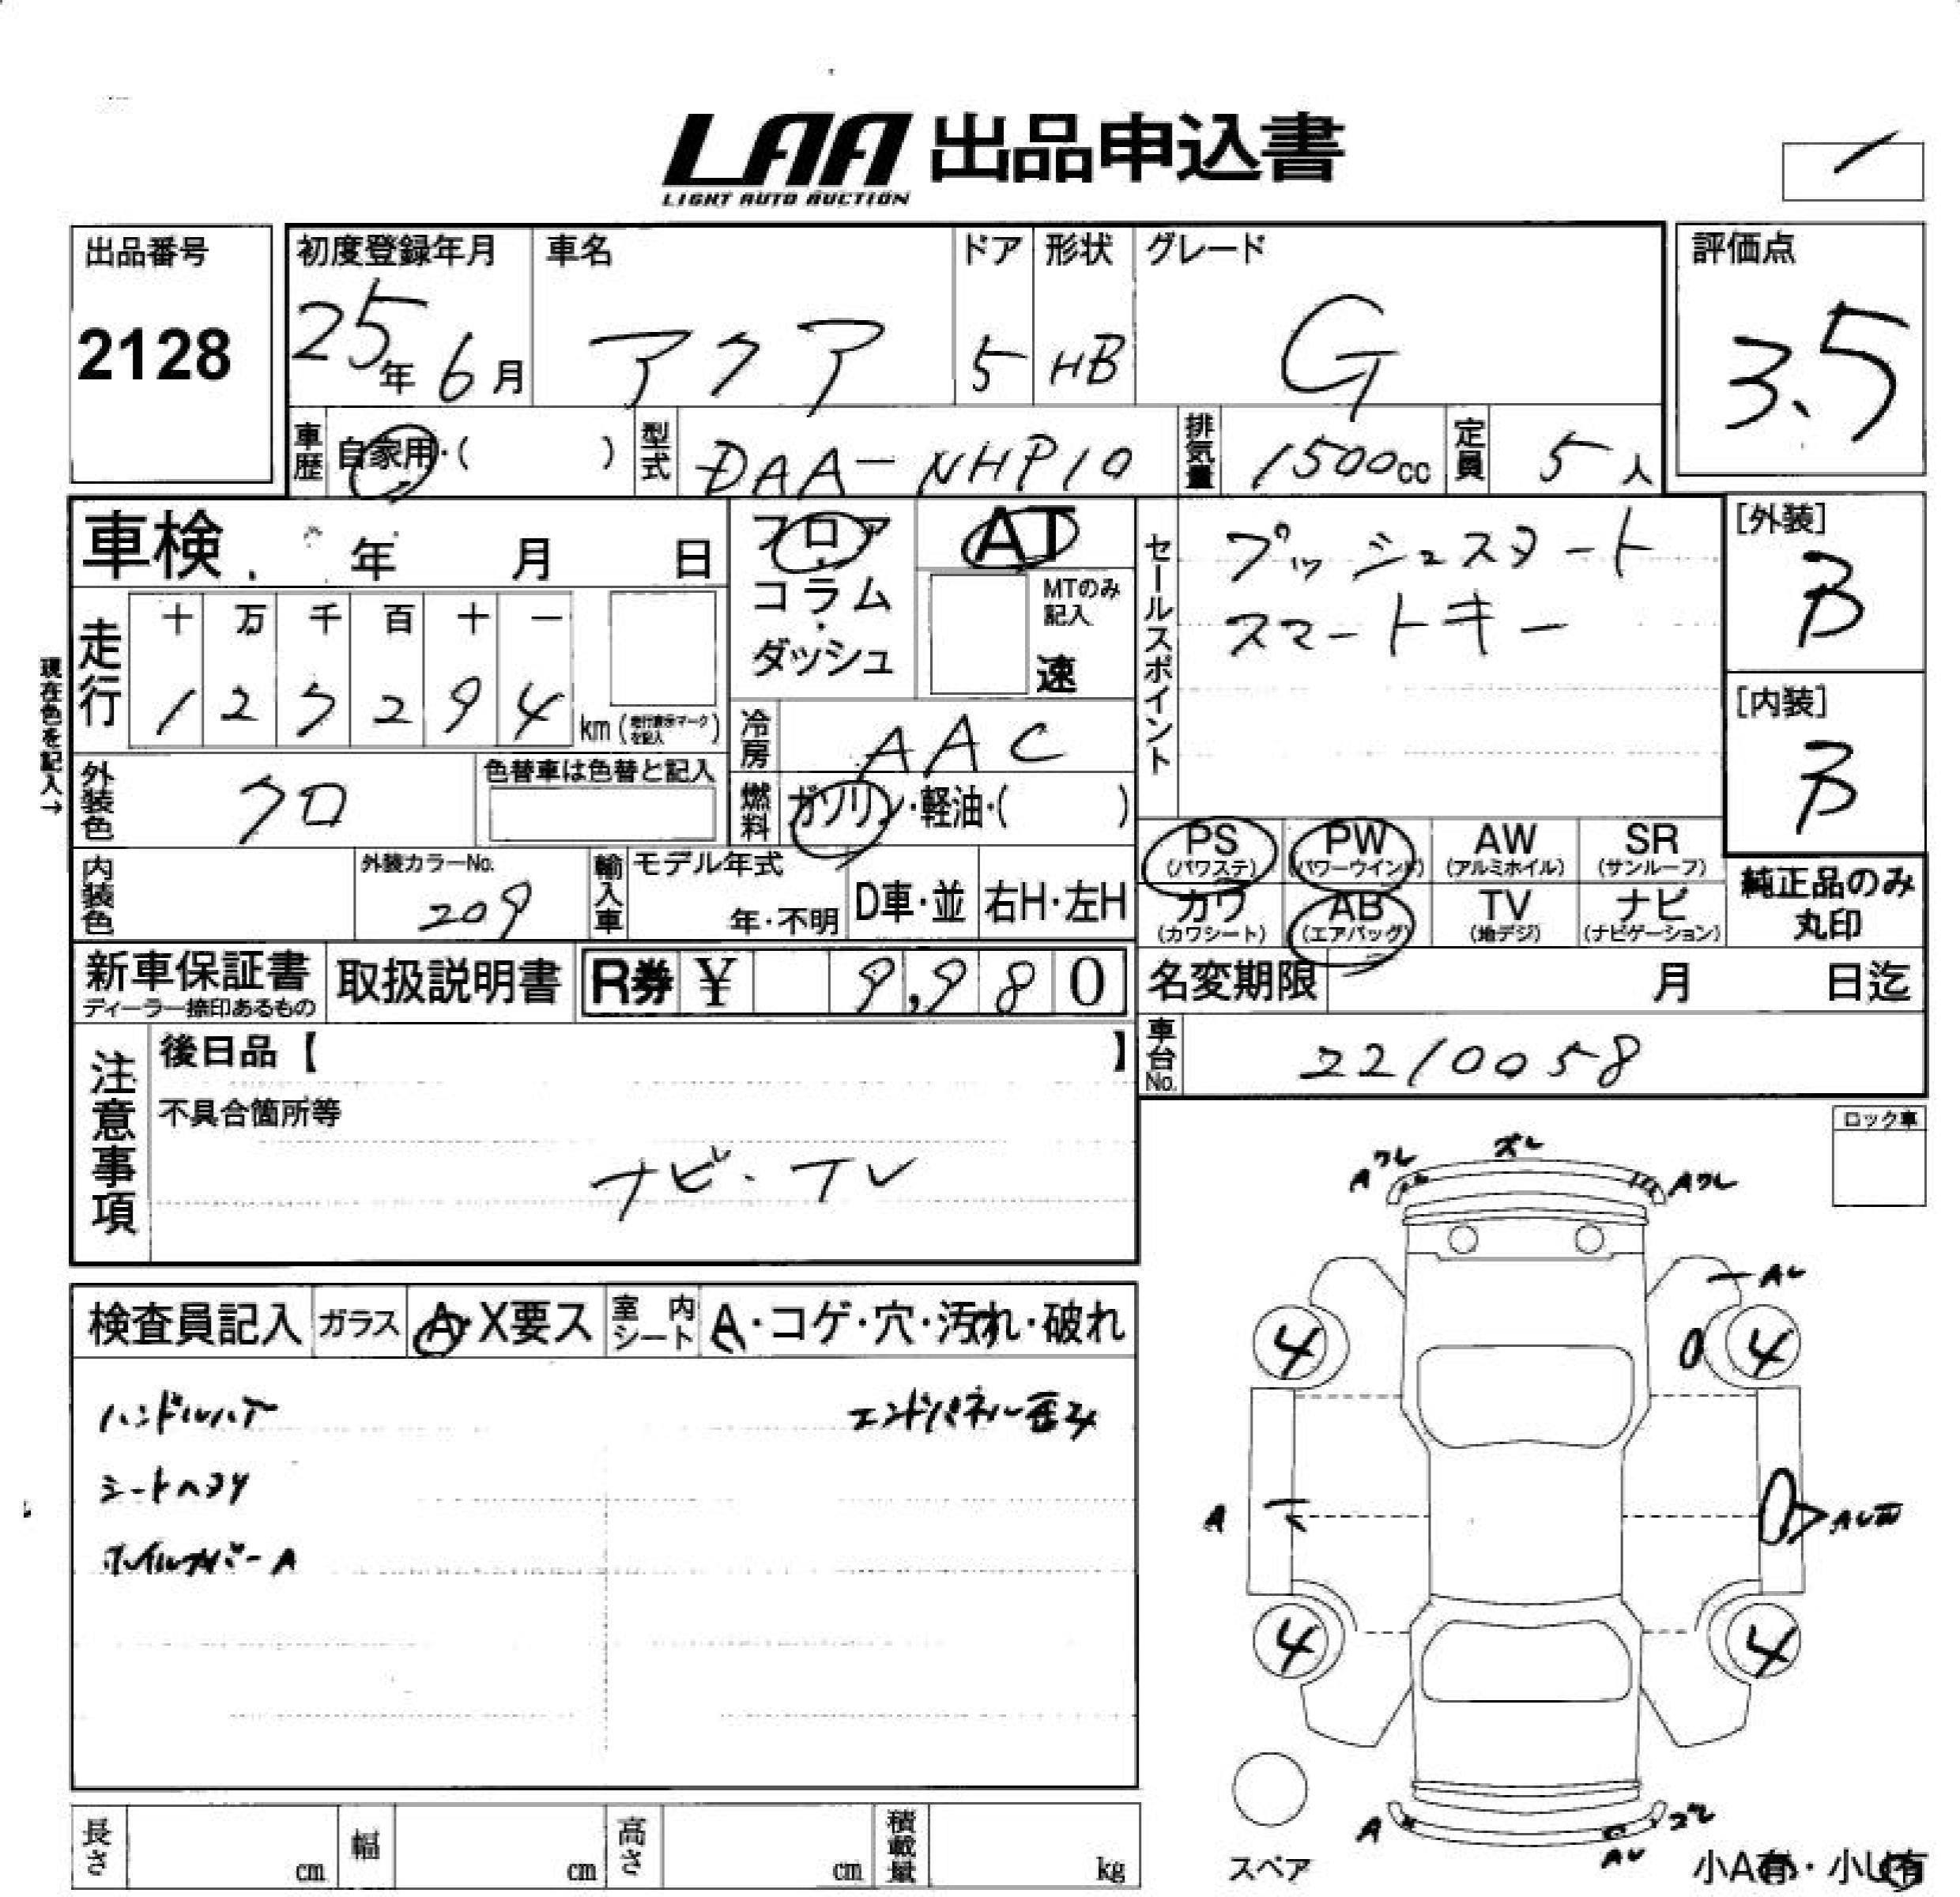 LAA 出品申込書
LIGHT AUTO AUCTION
出品番号
2128
初度登録年月
25年6月
車名
アクア
ドア
5
形状
HB
グレード
G
評価点
3.5
車歴
自家用・( )
型式
DAA-NHP10
排気量
1500cc
定員
5人
車検 年 月 日
フロア
コラム
ダッシュ
AT
MTのみ記入
速
セールスポイント
プッシュスタート
スマートキー
[外装]
B
[内装]
B
現在色を記入→
走行
十 万 千 百 十 一
1 2 5 2 9 4
km(走行表示マークを記入)
冷房
AAC
外装色
クロ
色替車は色替と記入
燃料
ガソリン・軽油・( )
PS
(パワステ)
PW
(パワーウインド)
AW
(アルミホイル)
SR
(サンルーフ)
純正品のみ
丸印
カワ
(カワシート)
AB
(エアバッグ)
TV
(地デジ)
ナビ
(ナビゲーション)
内装色
外装カラーNo.
209
輸入車
モデル年式
年・不明
D車・並
右H・左H
新車保証書
ディーラー捺印あるもの
取扱説明書
R券 ¥ 9,980
名変期限 月 日迄
車台No.
2210058
注意事項
後日品【 】
不具合箇所等
ナビ・TV
ロック車
検査員記入
ガラス
A・X要ス
室内シート
A・コゲ・穴・汚れ・破れ
ハンドルハゲ
エンドパネル歪み
シートヘタリ
ホイルカバーA
Aワレ
ズレ
Aワレ
AU
4
4
A
AU凹
4
4
A
AU
スペア
小A有・小U有
長さ cm
幅 cm
高さ cm
積載量 kg